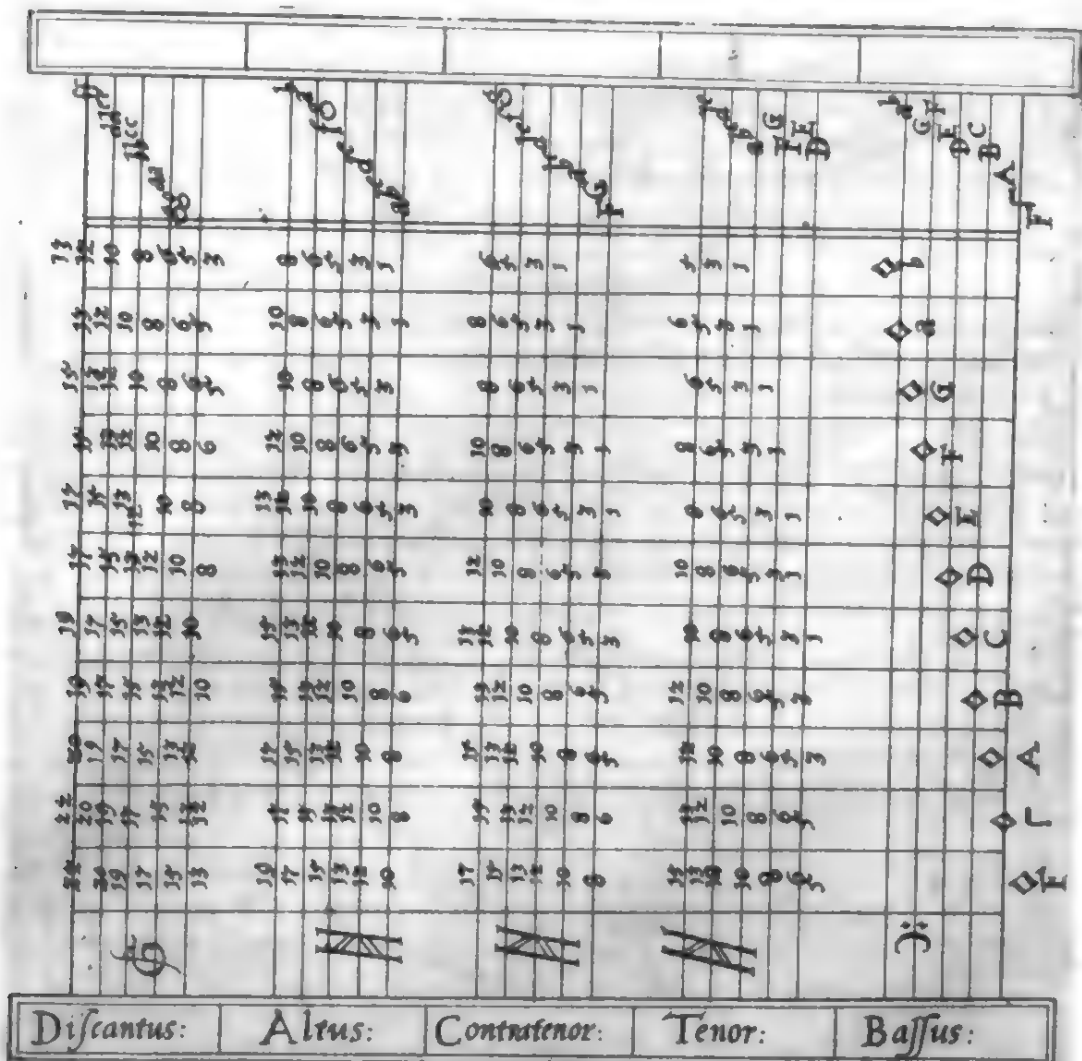 13 12 10 8 6 5 3 8 6 5 3 1 6 5 3 1 5 3 1 b
13 12 10 8 6 5 10 8 6 5 3 1 8 6 5 3 1 6 5 3 1 a
15 13 12 10 8 6 5 10 8 6 5 3 8 6 5 3 1 6 5 3 1 G
15 13 12 10 8 6 12 10 8 6 5 3 10 8 6 5 3 1 8 6 5 3 1 F
17 15 13 12 10 8 13 12 10 8 6 5 3 10 8 6 5 3 1 8 6 5 3 1 E
17 15 13 12 10 8 13 12 10 8 6 5 12 10 8 6 5 3 10 8 6 5 3 1 D
19 17 15 13 12 10 15 13 12 10 8 6 5 13 12 10 8 6 5 3 10 8 6 5 3 1 C
19 17 15 13 12 10 15 13 12 10 8 6 13 12 10 8 6 5 12 10 8 6 5 3 B
20 19 17 15 13 12 17 15 13 12 10 8 15 13 12 10 8 6 5 12 10 8 6 5 3 A
22 20 19 17 15 13 12 17 15 13 12 10 8 15 13 12 10 8 6 13 12 10 8 6 5 Γ
22 20 19 17 15 13 19 17 15 13 12 10 17 15 13 12 10 8 15 13 12 10 8 6 5 F
Diſcantus: Altus: Contratenor: Tenor: Baſſus: